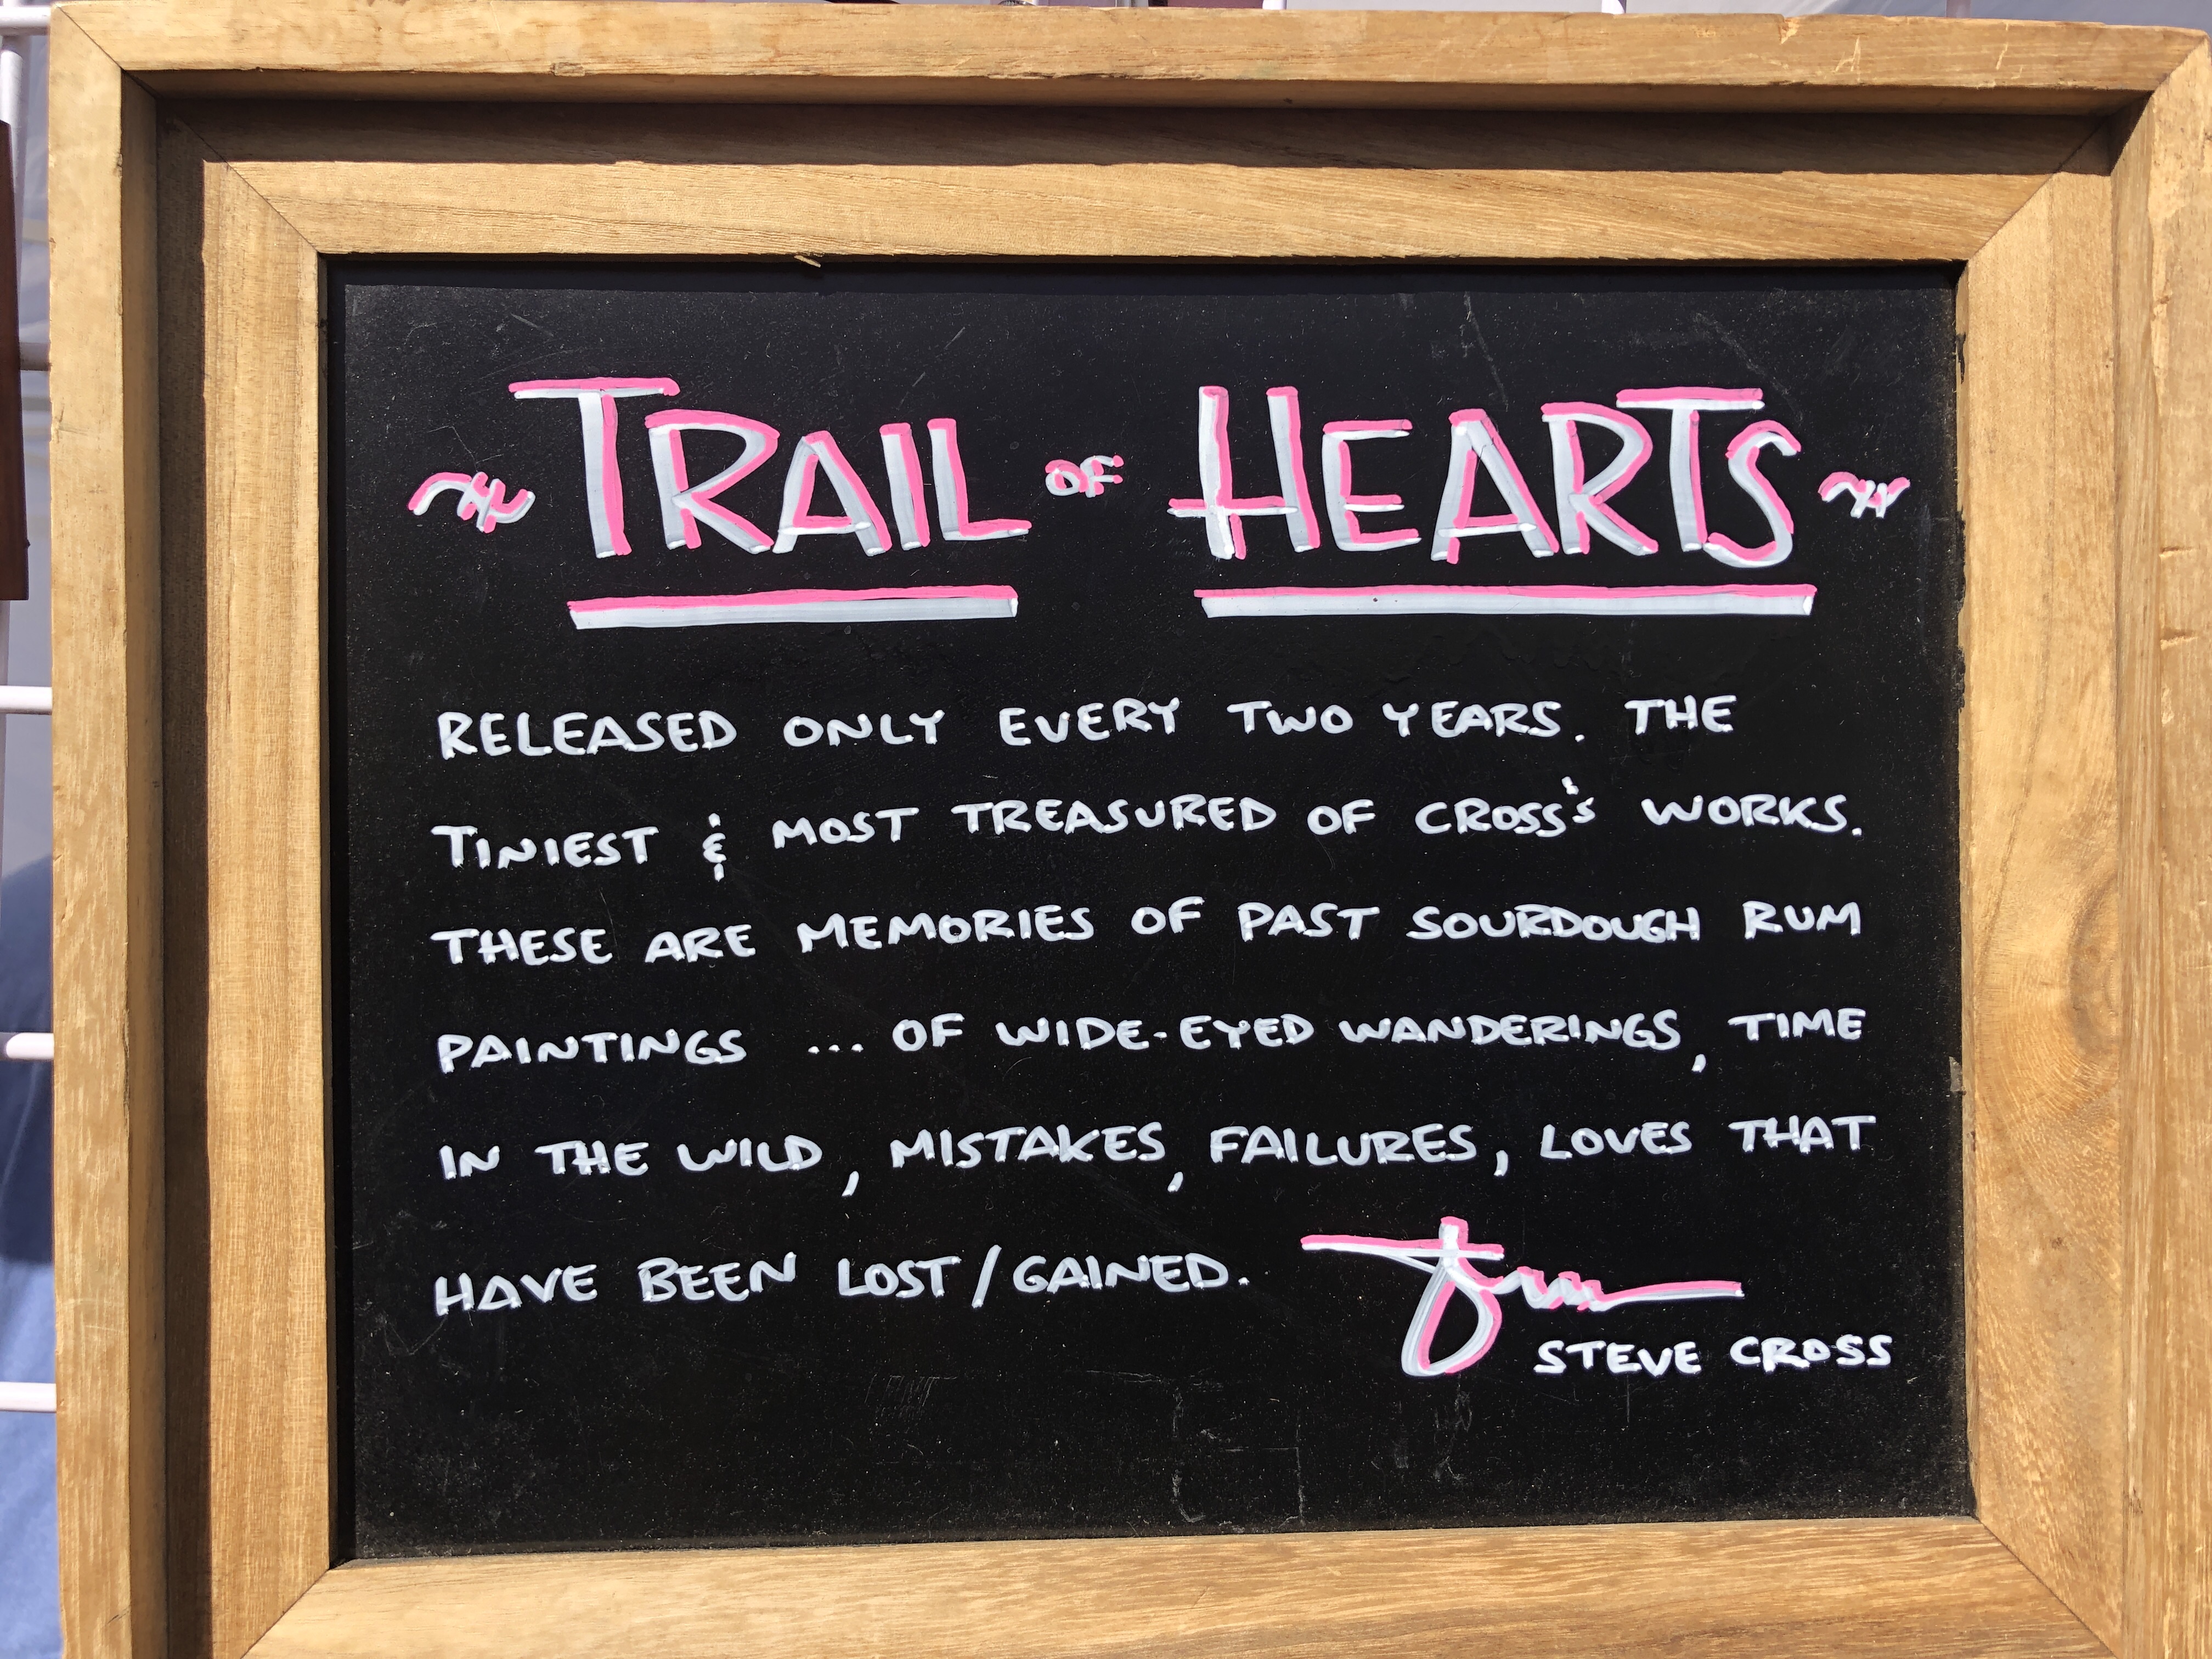 TRAIL OF HEARTS
RELEASED ONLY EVERY TWO YEARS. THE
TINIEST & MOST TREASURED OF CROSS'S WORKS.
THESE ARE MEMORIES OF PAST SOURDOUGH RUM
PAINTINGS ... OF WIDE-EYED WANDERINGS, TIME
IN THE WILD, MISTAKES, FAILURES, LOVES THAT
HAVE BEEN LOST/GAINED.
STEVE CROSS